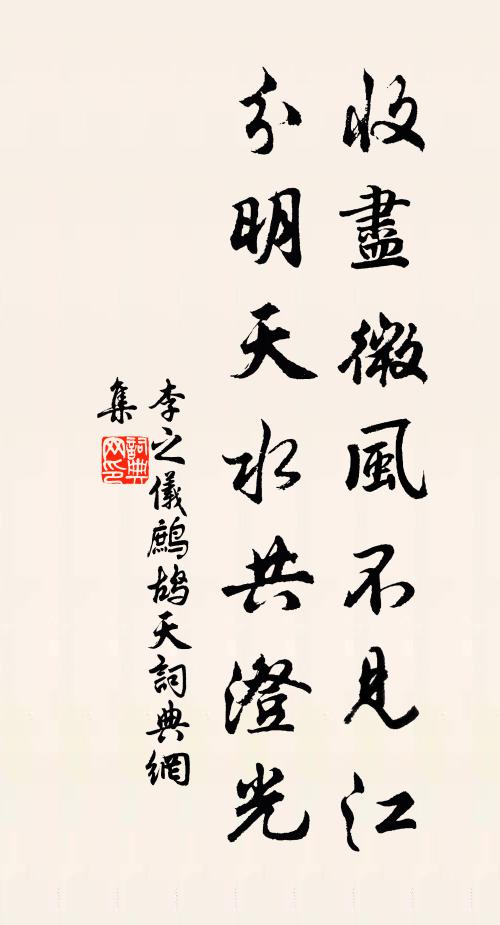 收盡微風不見江
分明天水共澄光
李之儀鷓鴣天詞典網
集
詞典
网印